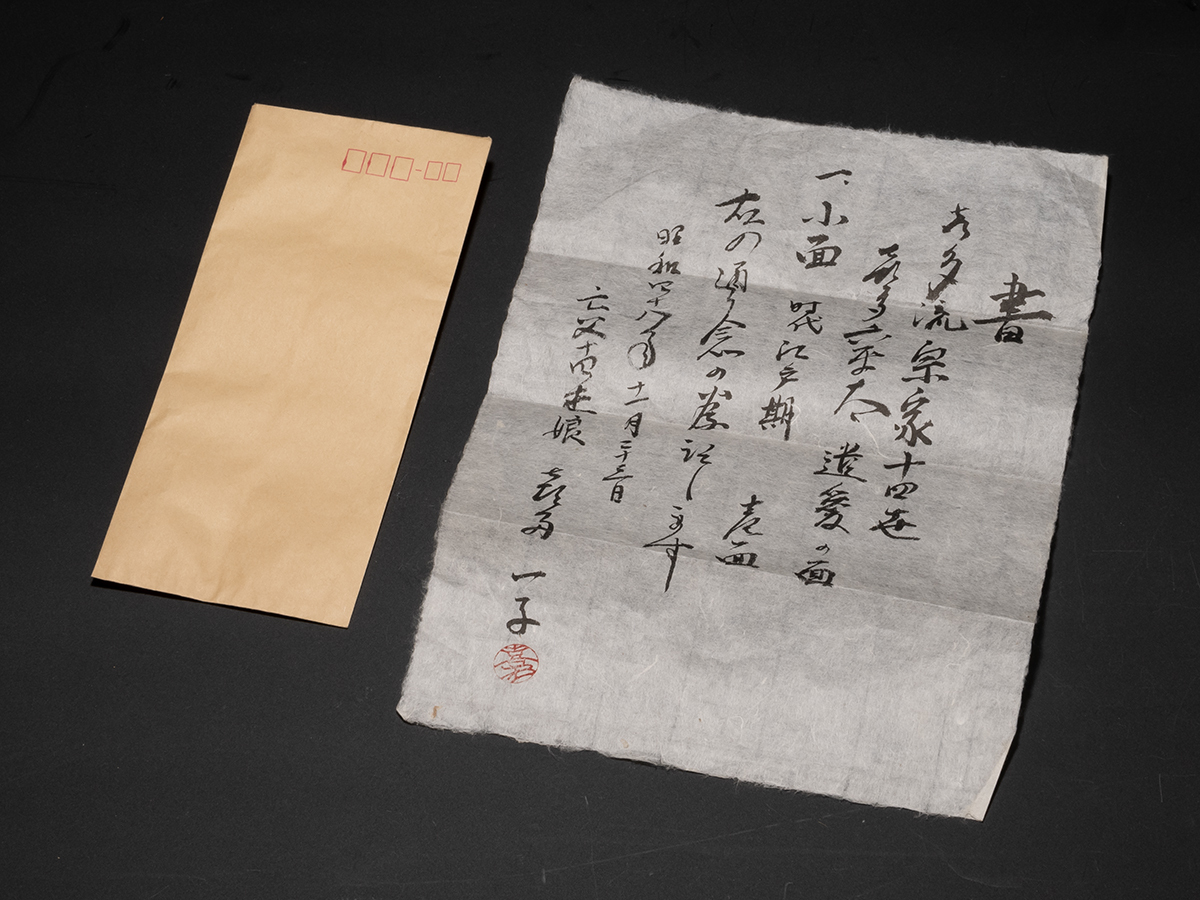 書
喜多流宗家十四世
喜多六平太遺愛の面
一、小面 時代江戸期 壱面
右の通り念の為記します
昭和四十八年十一月二十三日
亡父十四世娘 喜多 一子